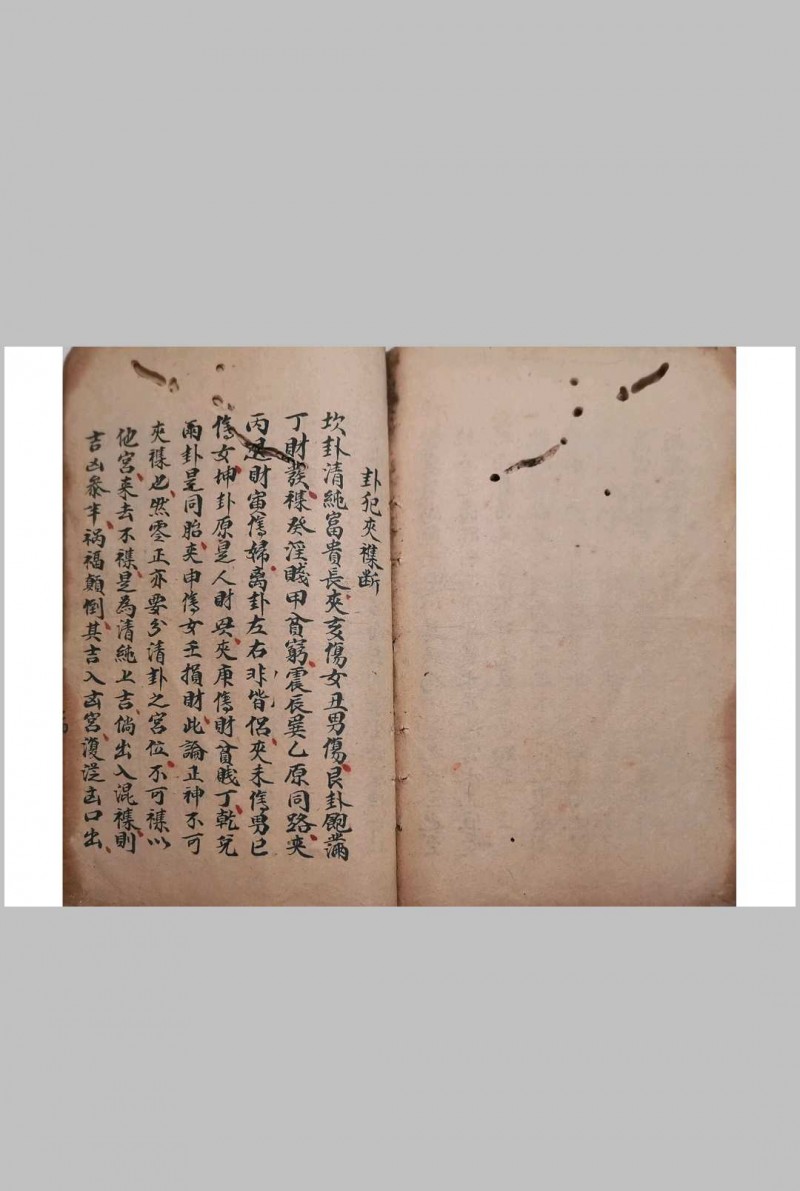 卦犯夾襍斷
坎卦清純富貴長夾亥傷女丑男傷艮卦飽滿
丁財發襍癸淫賤甲貧窮震辰巽乙原同路夾
丙退財寅傷婦离卦左右非皆侶夾未傷男巳
傷女坤卦原是人財興夾庚傷財貧賤丁乾兌
兩卦是同胎夾申傷女壬損財此論正神不可
夾襍也然零正亦要分清卦之宮位不可襍以
他宮来去不襍是為清純上吉倘出入混襍則
吉凶參半祸福顛倒其吉入凶宮復從凶口出